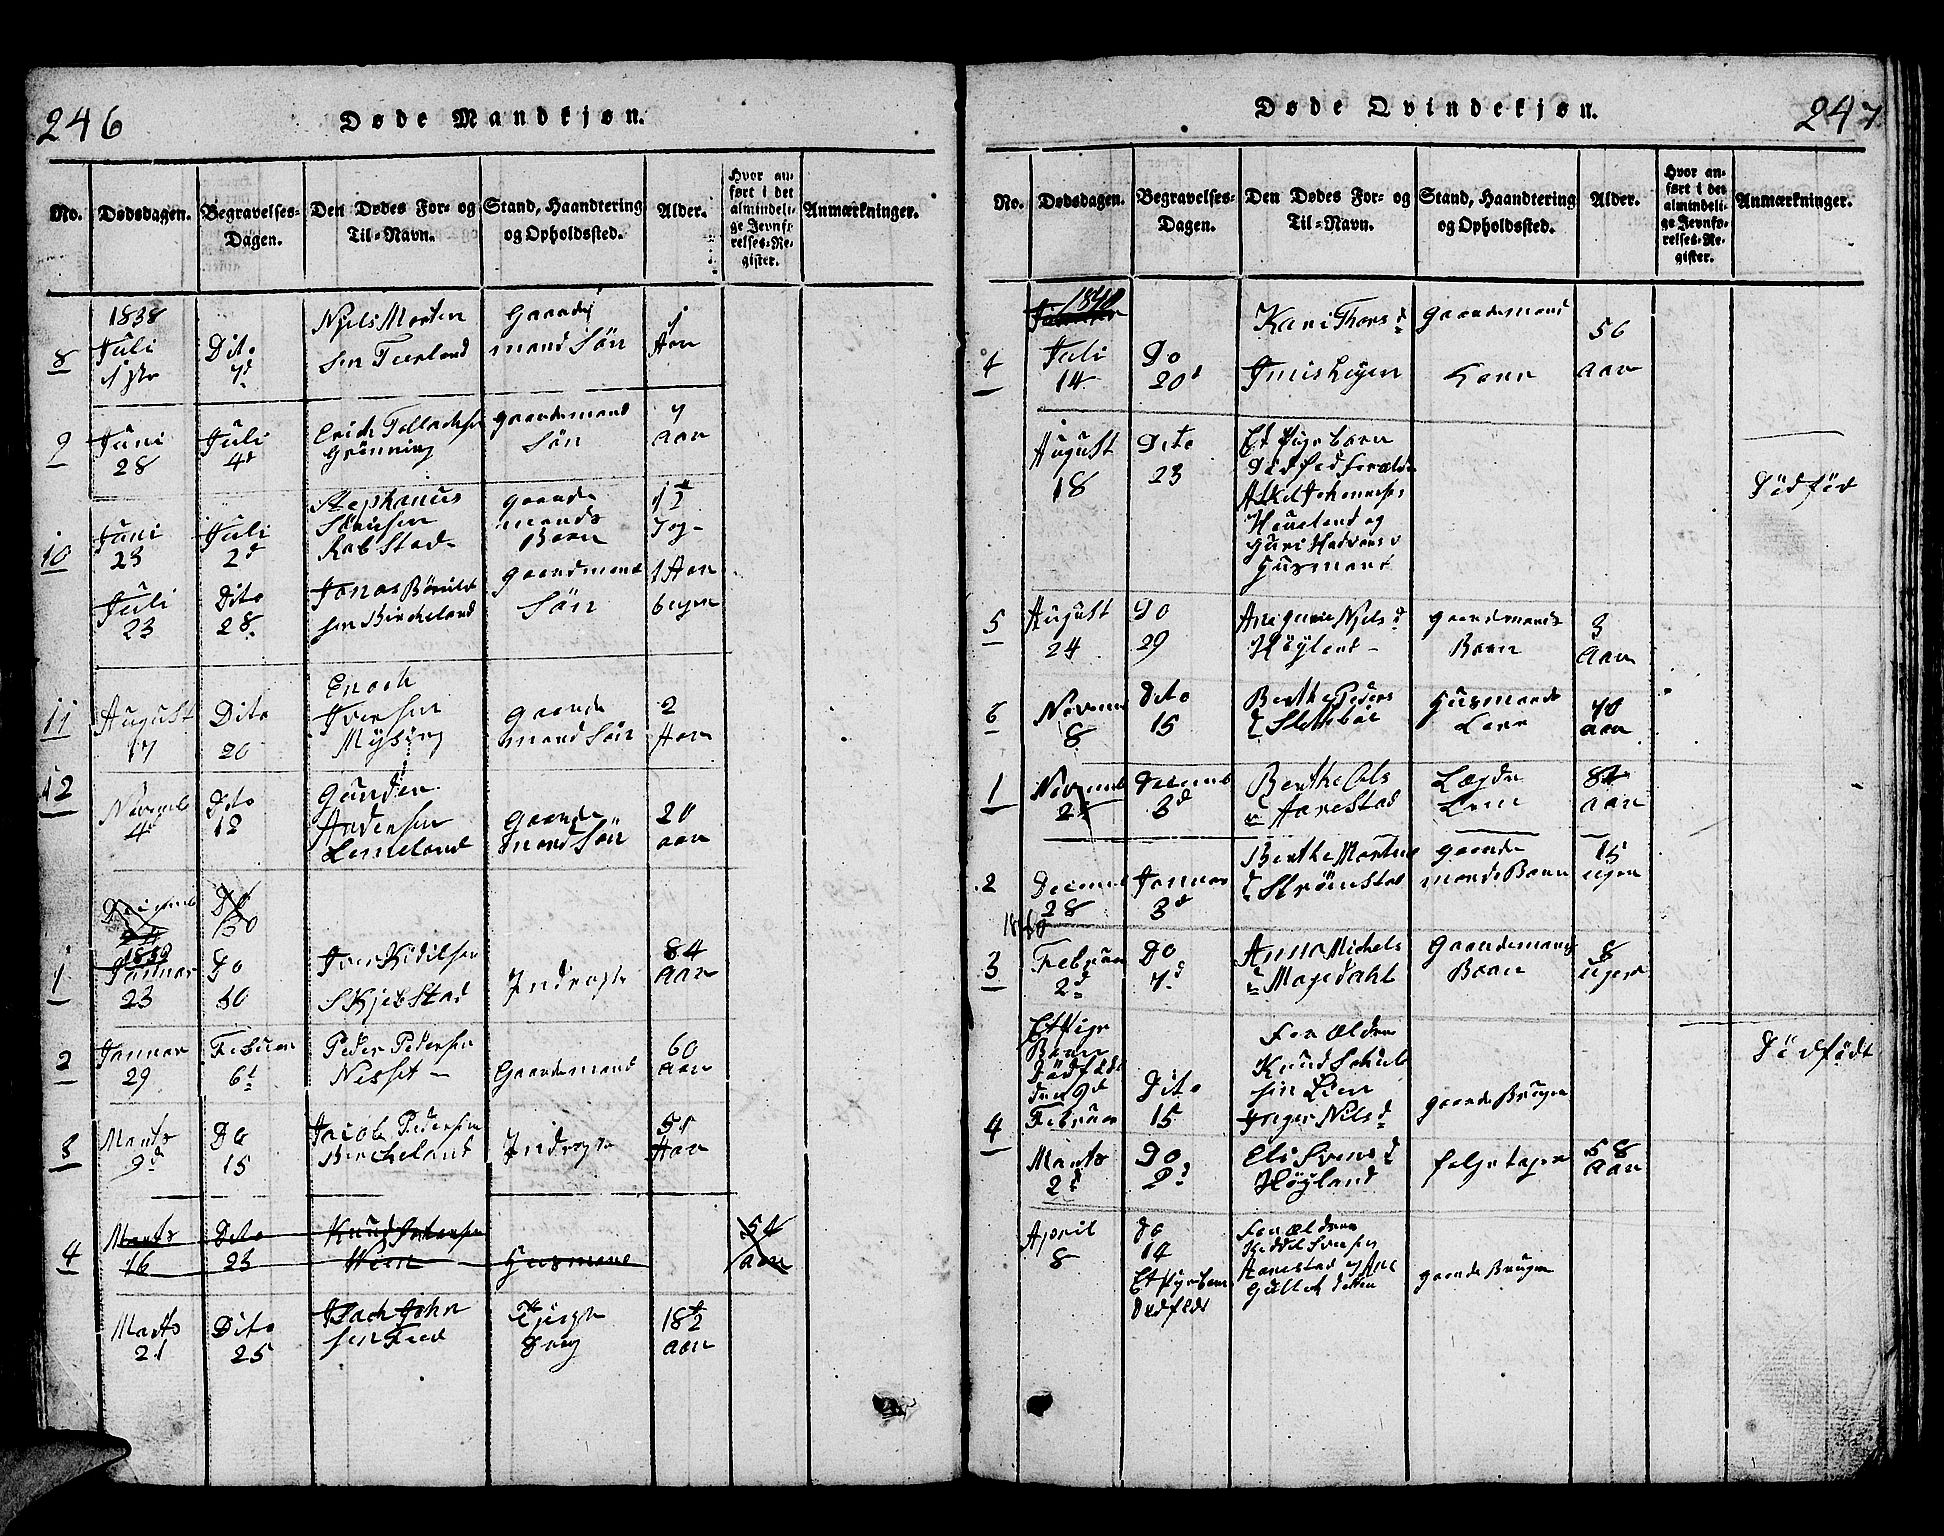 246
Døde Mandkjøn.
No.
Dødsdagen.
Begravelses-
Dagen.
Den Dødes For- og
Til-Navn.
Stand, Haandtering
og Opholdssted.
Alder.
Hvor an-
ført i det
almindeli-
ge Jevnfø-
relses-Re-
gister.
Anmærkninger.
1838
8
Juli
Dito
7d
Njels Morten
sen
Gaarde
mand Sön
1
Aar
9
Juni
28
Juli
4d
Erich Tollachsen
Grönning
gaardemands
Sön
7
aar
10
Juni
23
Juli
2d
Stephanus
Sörensen
Rabstad
gaarde
mands
Barn
Juli
23
Dito
28
Jonas
sen Birckeland
gaardmand
Sön
1 Aar
6 ugen
11
August
17
Dito
20
Enoch
Iversen
Mysing
Gaarde
mand Sön
2
Aar
12
Novemb
4d
Dito
12
Gunder
Andersen
Lenneland
Gaarde
mand Sön
20
aar
1839
1
Januar
23
Do
30
Iver Kidilsen
Skjebstad
Inderste
84
Aar
2
Januar
29
Februar
6d
Peder Pedersen
Nesset
Gaardemand
60
aar
3
Marts
9d
Do
15
Jacob Pedersen
Birckeland
Inderste
51
Aar
4
Marts
16
Dito
23
Knud
Husmand
54
aar
Marts
21
Dito
25
Isach John
sen
18½
aar
247
Døde Qvindekjøn.
No.
Dødsdagen.
Begravelses-
Dagen.
Den Dødes For- og
Til-Navn.
Stand, Haandtering
og Opholdssted.
Alder.
Hvor an-
ført i det
almindeli-
ge Jevnfø-
relses-Re-
gister.
Anmærkninger.
4
Juli
14
Do
20d
Kari Thors d
gaardemand
Kone
56
aar
August
18
Dito
23
Et Pige barn
Dödföd foreldr
Askel Johannesen
Houeland og
Guri Hadvars d
Husmand
Dödföd
5
August
24
Do
29
Ane gurie Njels d
Höyland
gaardemands
Barn
3
Aar
6
Novem
8
Dito
15
Berthe Peders
d Slettebøe
Husmands
Kone
70
aar
1
Novemb
Decemb
3d
Berthe Ols
d Aarestad
Lægds
Lem
82
aar
2
Decemb
28
Januar
3d
Berthe Martine
d Strömstad
gaarde
mands Barn
15
ugen
1840
3
Februar
2d
Do
7d
Anna Michels
d Mogedahl
Gaardemands
Barn
8
ugen
Et Pige
Barn
Dödfödt
den 9d
Februar
Dito
15
Forældre
Knud
sen Lien
Inger Nils d
gaarde Bruger
Dödfödt
4
Marts
2d
Do
9d
Eli Svens d
Höyland
58
aar
April
8
do
14
Et Pige barn
Dødfødt
Forældre
Keddel Svensen
Aarestad og Ane
gaarde Bruger